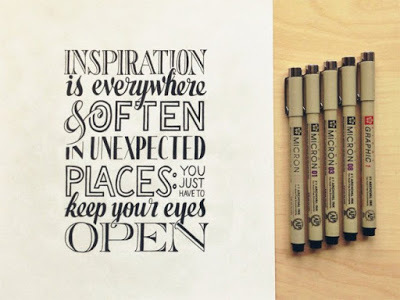 INSPIRATION
is everywhere
& OFTEN
IN UNEXPECTED
PLACES: YOU
JUST
HAVE TO
keep your eyes
OPEN
MICRON
MICRON 01
MICRON 03
MICRON 08
GRAPHIC 1